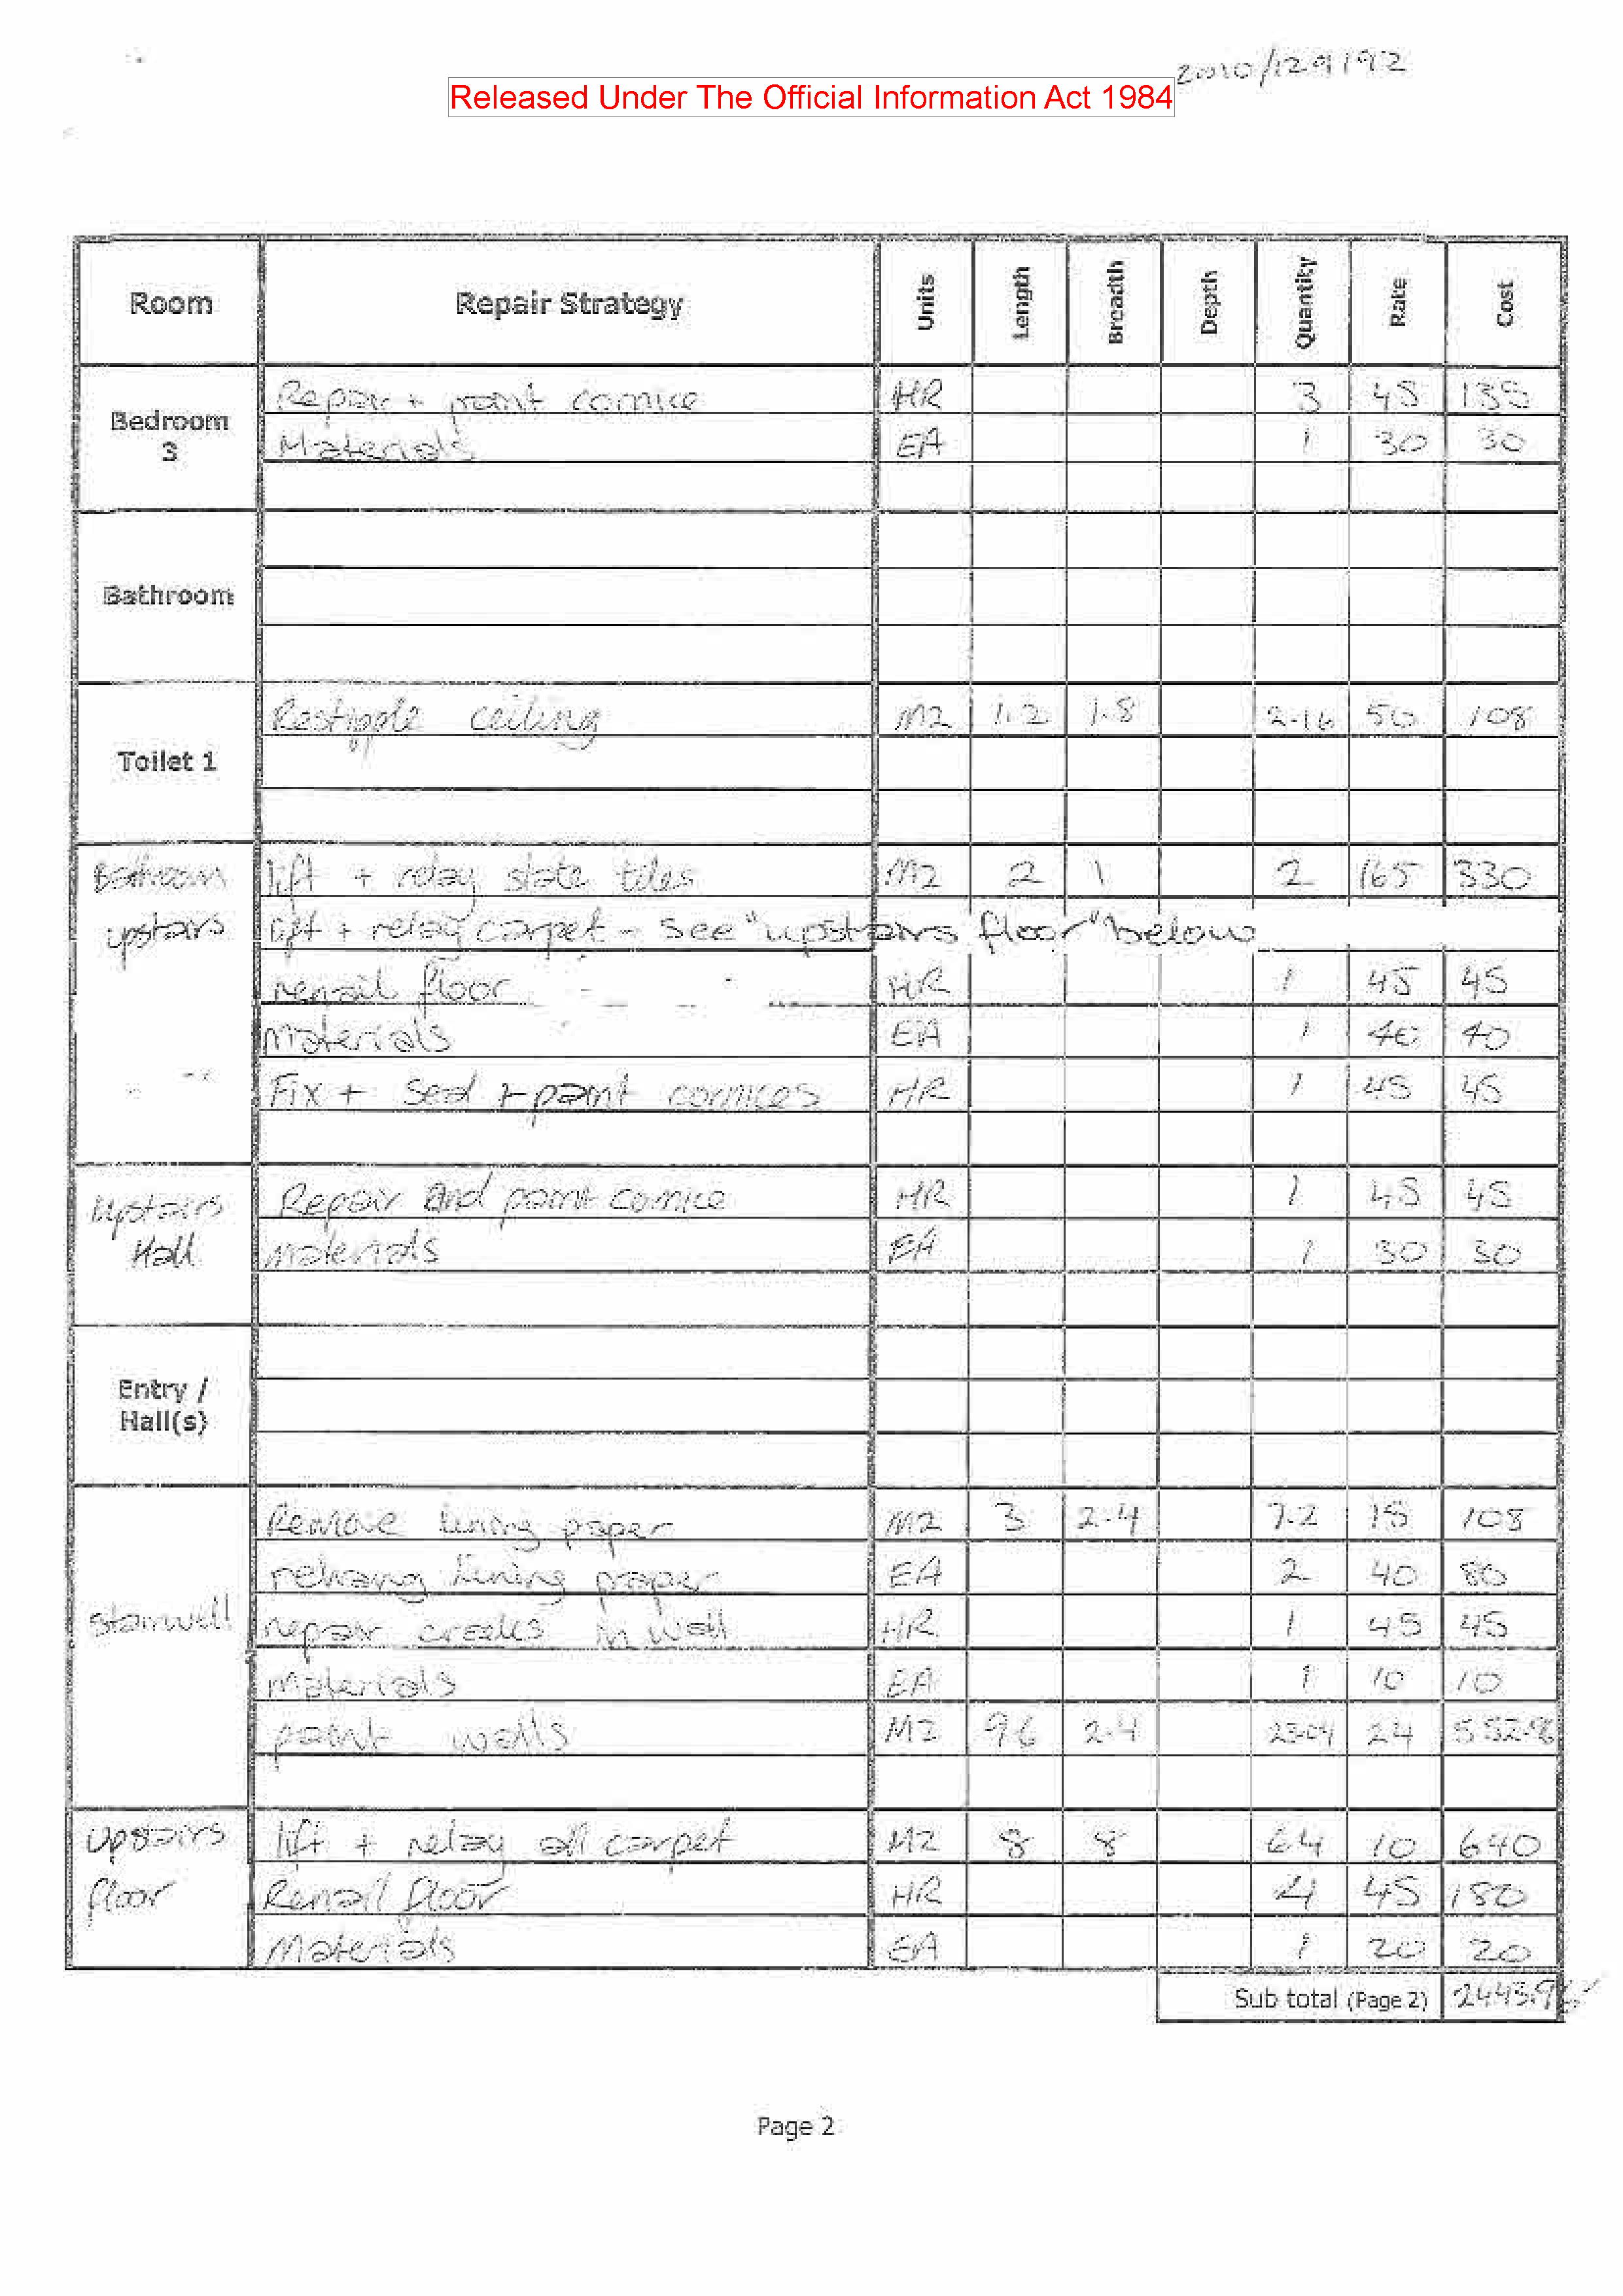 2010/129192
Released Under The Official Information Act 1984
Room Repair Strategy Units Length Breadth Depth Quantity Rate Cost
Bedroom 3
Repair + paint cornice HR 3 45 135
Materials EA 1 30 30
Bathroom
Toilet 1
Restipple ceiling M2 1.2 1.8 2.16 50 108
Bathroom upstairs
lift + relay slate tiles M2 2 1 2 165 330
lift + relay carpet - see "upstairs floor" below
renail floor HR 1 45 45
materials EA 1 40 40
Fix + seal + paint cornices HR 1 45 45
Upstairs Hall
Repair And paint cornice HR 1 45 45
materials EA 1 30 30
Entry / Hall(s)
stairwell
Remove lining paper M2 3 2.4 7.2 15 108
rehang lining paper EA 2 40 80
repair cracks in wall HR 1 45 45
materials EA 1 10 10
paint walls M2 96 2.4 23.04 24 552.96
Upstairs floor
lift + relay all carpet M2 8 8 64 10 640
Renail floor HR 4 45 180
Materials EA 1 20 20
Sub total (Page 2) 2443.96
Page 2